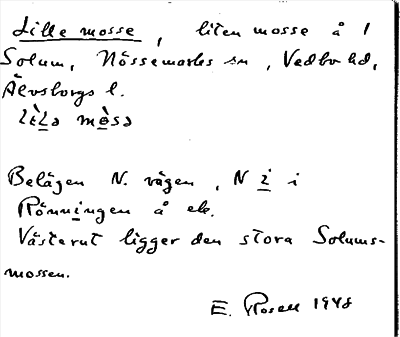 Lille mosse, liten mosse å 1
Solum, Nössemarks sn, Vedbo hd,
Älvsborgs l.
Belägen N. vägen, N i i
Rönningen å ek.
Västerut ligger den stora Solums-
mossen.
E. Rosell 1948